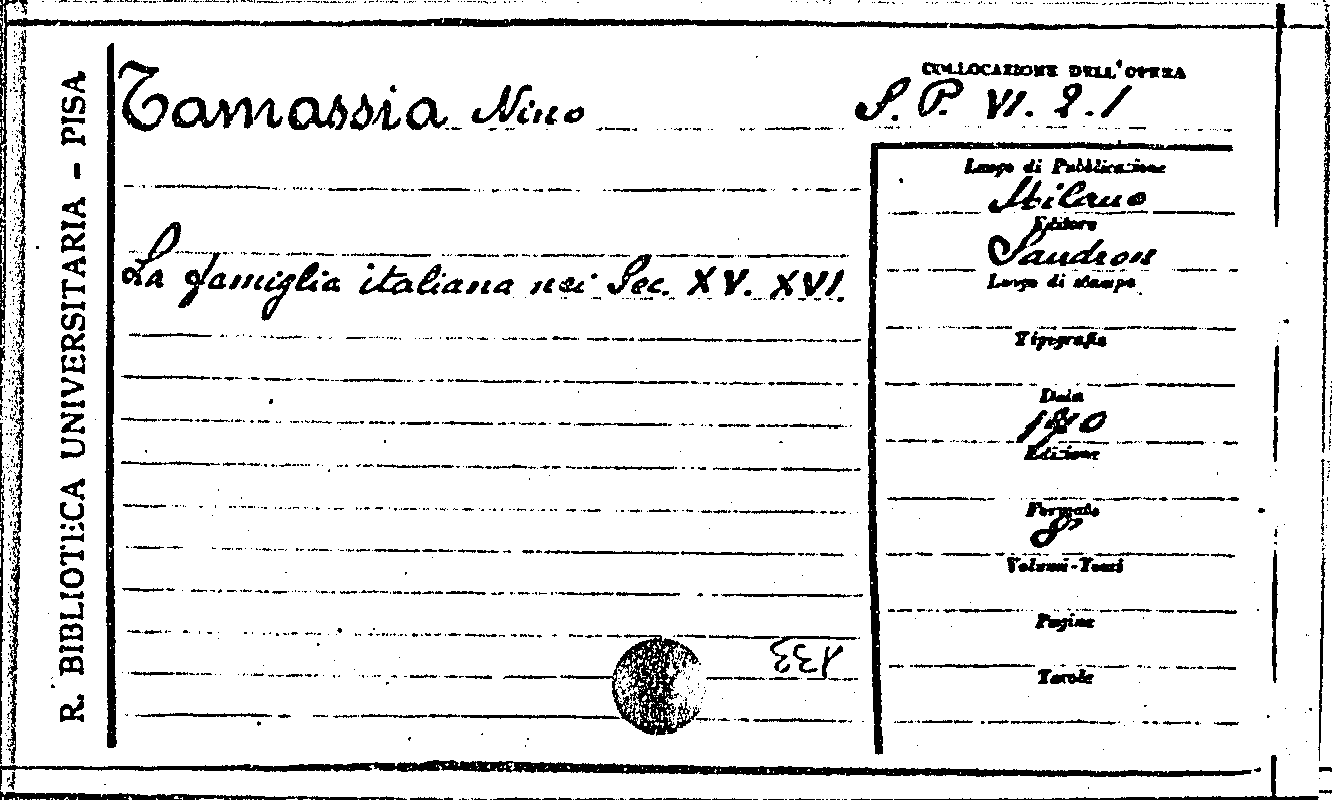 R. BIBLIOTECA UNIVERSITARIA - PISA
Tamassia Nino
La famiglia italiana nei Sec. XV. XVI.
133
COLLOCAZIONE DELL'OPERA
S. P. VI. 2. 1
Luogo di Pubblicazione
Milano
Editore
Sandron
Luogo di stampa
Tipografia
Data
Edizione
Formato
8°
Volumi-Tomi
Pagine
Tavole